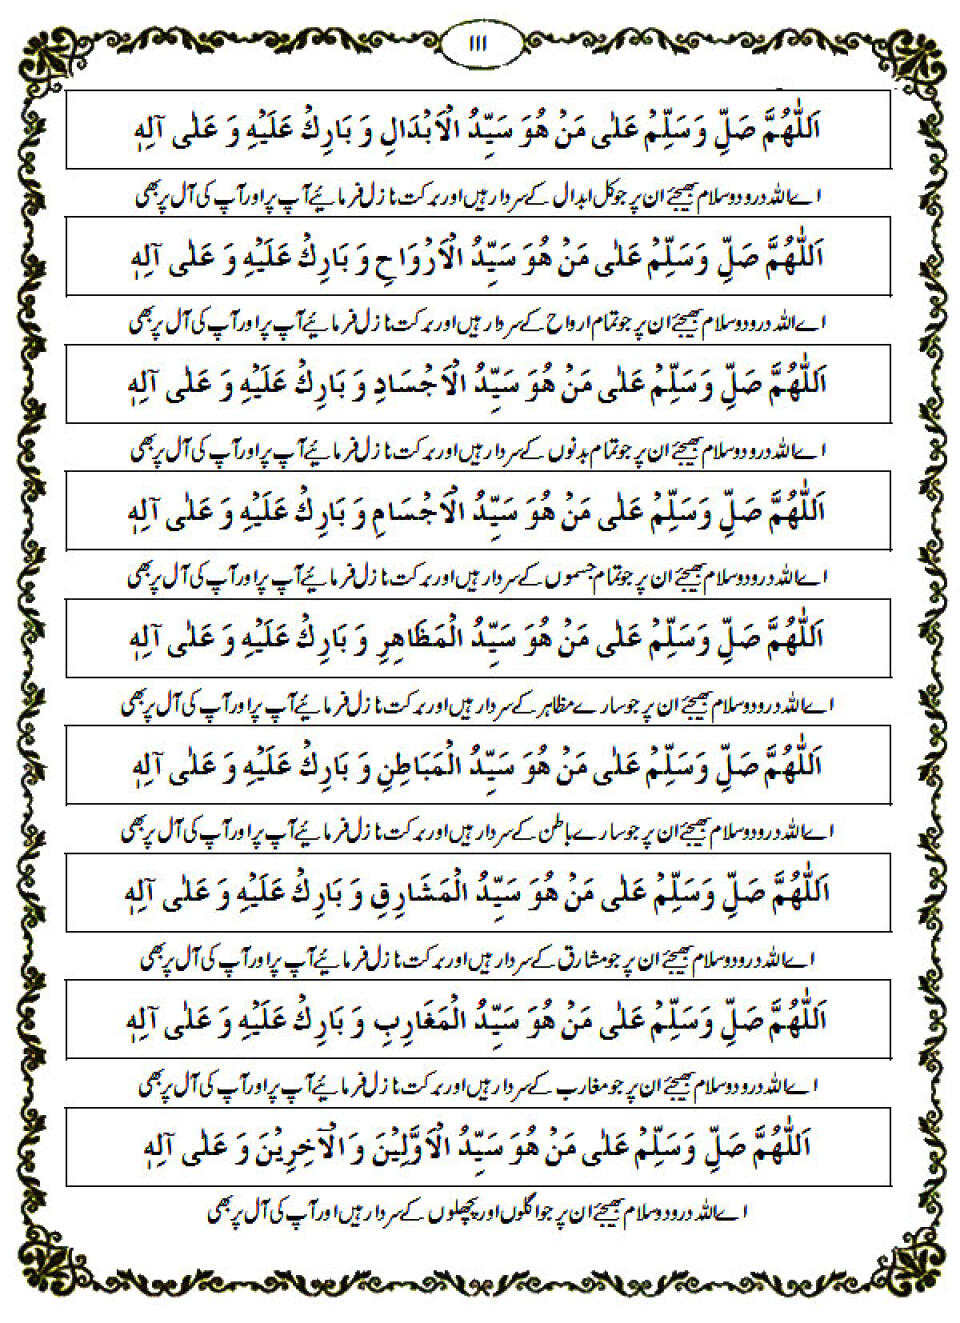 ااا
اَللّٰهُمَّ صَلِّ وَسَلِّمْ عَلٰى مَنْ هُوَ سَيِّدُ الْاَبْدَالِ وَ بَارِكْ عَلَيْهِ وَ عَلٰى آلِهٖ
اے اللہ درود و سلام بھیجئے ان پر جو کل ابدال کے سردار ہیں اور برکت نازل فرمائیے آپ پر اور آپ کی آل پر بھی
اَللّٰهُمَّ صَلِّ وَسَلِّمْ عَلٰى مَنْ هُوَ سَيِّدُ الْاَرْوَاحِ وَ بَارِكْ عَلَيْهِ وَ عَلٰى آلِهٖ
اے اللہ درود و سلام بھیجئے ان پر جو تمام ارواح کے سردار ہیں اور برکت نازل فرمائیے آپ پر اور آپ کی آل پر بھی
اَللّٰهُمَّ صَلِّ وَسَلِّمْ عَلٰى مَنْ هُوَ سَيِّدُ الْاَجْسَادِ وَ بَارِكْ عَلَيْهِ وَ عَلٰى آلِهٖ
اے اللہ درود و سلام بھیجئے ان پر جو تمام بدنوں کے سردار ہیں اور برکت نازل فرمائیے آپ پر اور آپ کی آل پر بھی
اَللّٰهُمَّ صَلِّ وَسَلِّمْ عَلٰى مَنْ هُوَ سَيِّدُ الْاَجْسَامِ وَ بَارِكْ عَلَيْهِ وَ عَلٰى آلِهٖ
اے اللہ درود و سلام بھیجئے ان پر جو تمام جسموں کے سردار ہیں اور برکت نازل فرمائیے آپ پر اور آپ کی آل پر بھی
اَللّٰهُمَّ صَلِّ وَسَلِّمْ عَلٰى مَنْ هُوَ سَيِّدُ الْمَظَاهِرِ وَ بَارِكْ عَلَيْهِ وَ عَلٰى آلِهٖ
اے اللہ درود و سلام بھیجئے ان پر جو سارے مظاہر کے سردار ہیں اور برکت نازل فرمائیے آپ پر اور آپ کی آل پر بھی
اَللّٰهُمَّ صَلِّ وَسَلِّمْ عَلٰى مَنْ هُوَ سَيِّدُ الْمَبَاطِنِ وَ بَارِكْ عَلَيْهِ وَ عَلٰى آلِهٖ
اے اللہ درود و سلام بھیجئے ان پر جو سارے باطن کے سردار ہیں اور برکت نازل فرمائیے آپ پر اور آپ کی آل پر بھی
اَللّٰهُمَّ صَلِّ وَسَلِّمْ عَلٰى مَنْ هُوَ سَيِّدُ الْمَشَارِقِ وَ بَارِكْ عَلَيْهِ وَ عَلٰى آلِهٖ
اے اللہ درود و سلام بھیجئے ان پر جو مشارق کے سردار ہیں اور برکت نازل فرمائیے آپ پر اور آپ کی آل پر بھی
اَللّٰهُمَّ صَلِّ وَسَلِّمْ عَلٰى مَنْ هُوَ سَيِّدُ الْمَغَارِبِ وَ بَارِكْ عَلَيْهِ وَ عَلٰى آلِهٖ
اے اللہ درود و سلام بھیجئے ان پر جو مغارب کے سردار ہیں اور برکت نازل فرمائیے آپ پر اور آپ کی آل پر بھی
اَللّٰهُمَّ صَلِّ وَسَلِّمْ عَلٰى مَنْ هُوَ سَيِّدُ الْاَوَّلِيْنَ وَ الْآخِرِيْنَ وَ عَلٰى آلِهٖ
اے اللہ درود و سلام بھیجئے ان پر جو اگلوں اور پچھلوں کے سردار ہیں اور آپ کی آل پر بھی